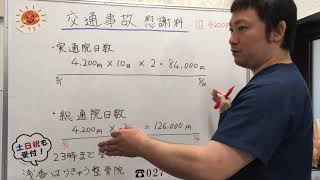 交通事故 慰謝料
旧4200
・実通院日数
4.200円 × 10日 × 2 = 84.000円
5/1
・総通院日数
4.200円 ×
= 126.000円
5/1
土日祝も
受付!
23時まで
浅香はりきゅう整骨院
☎027